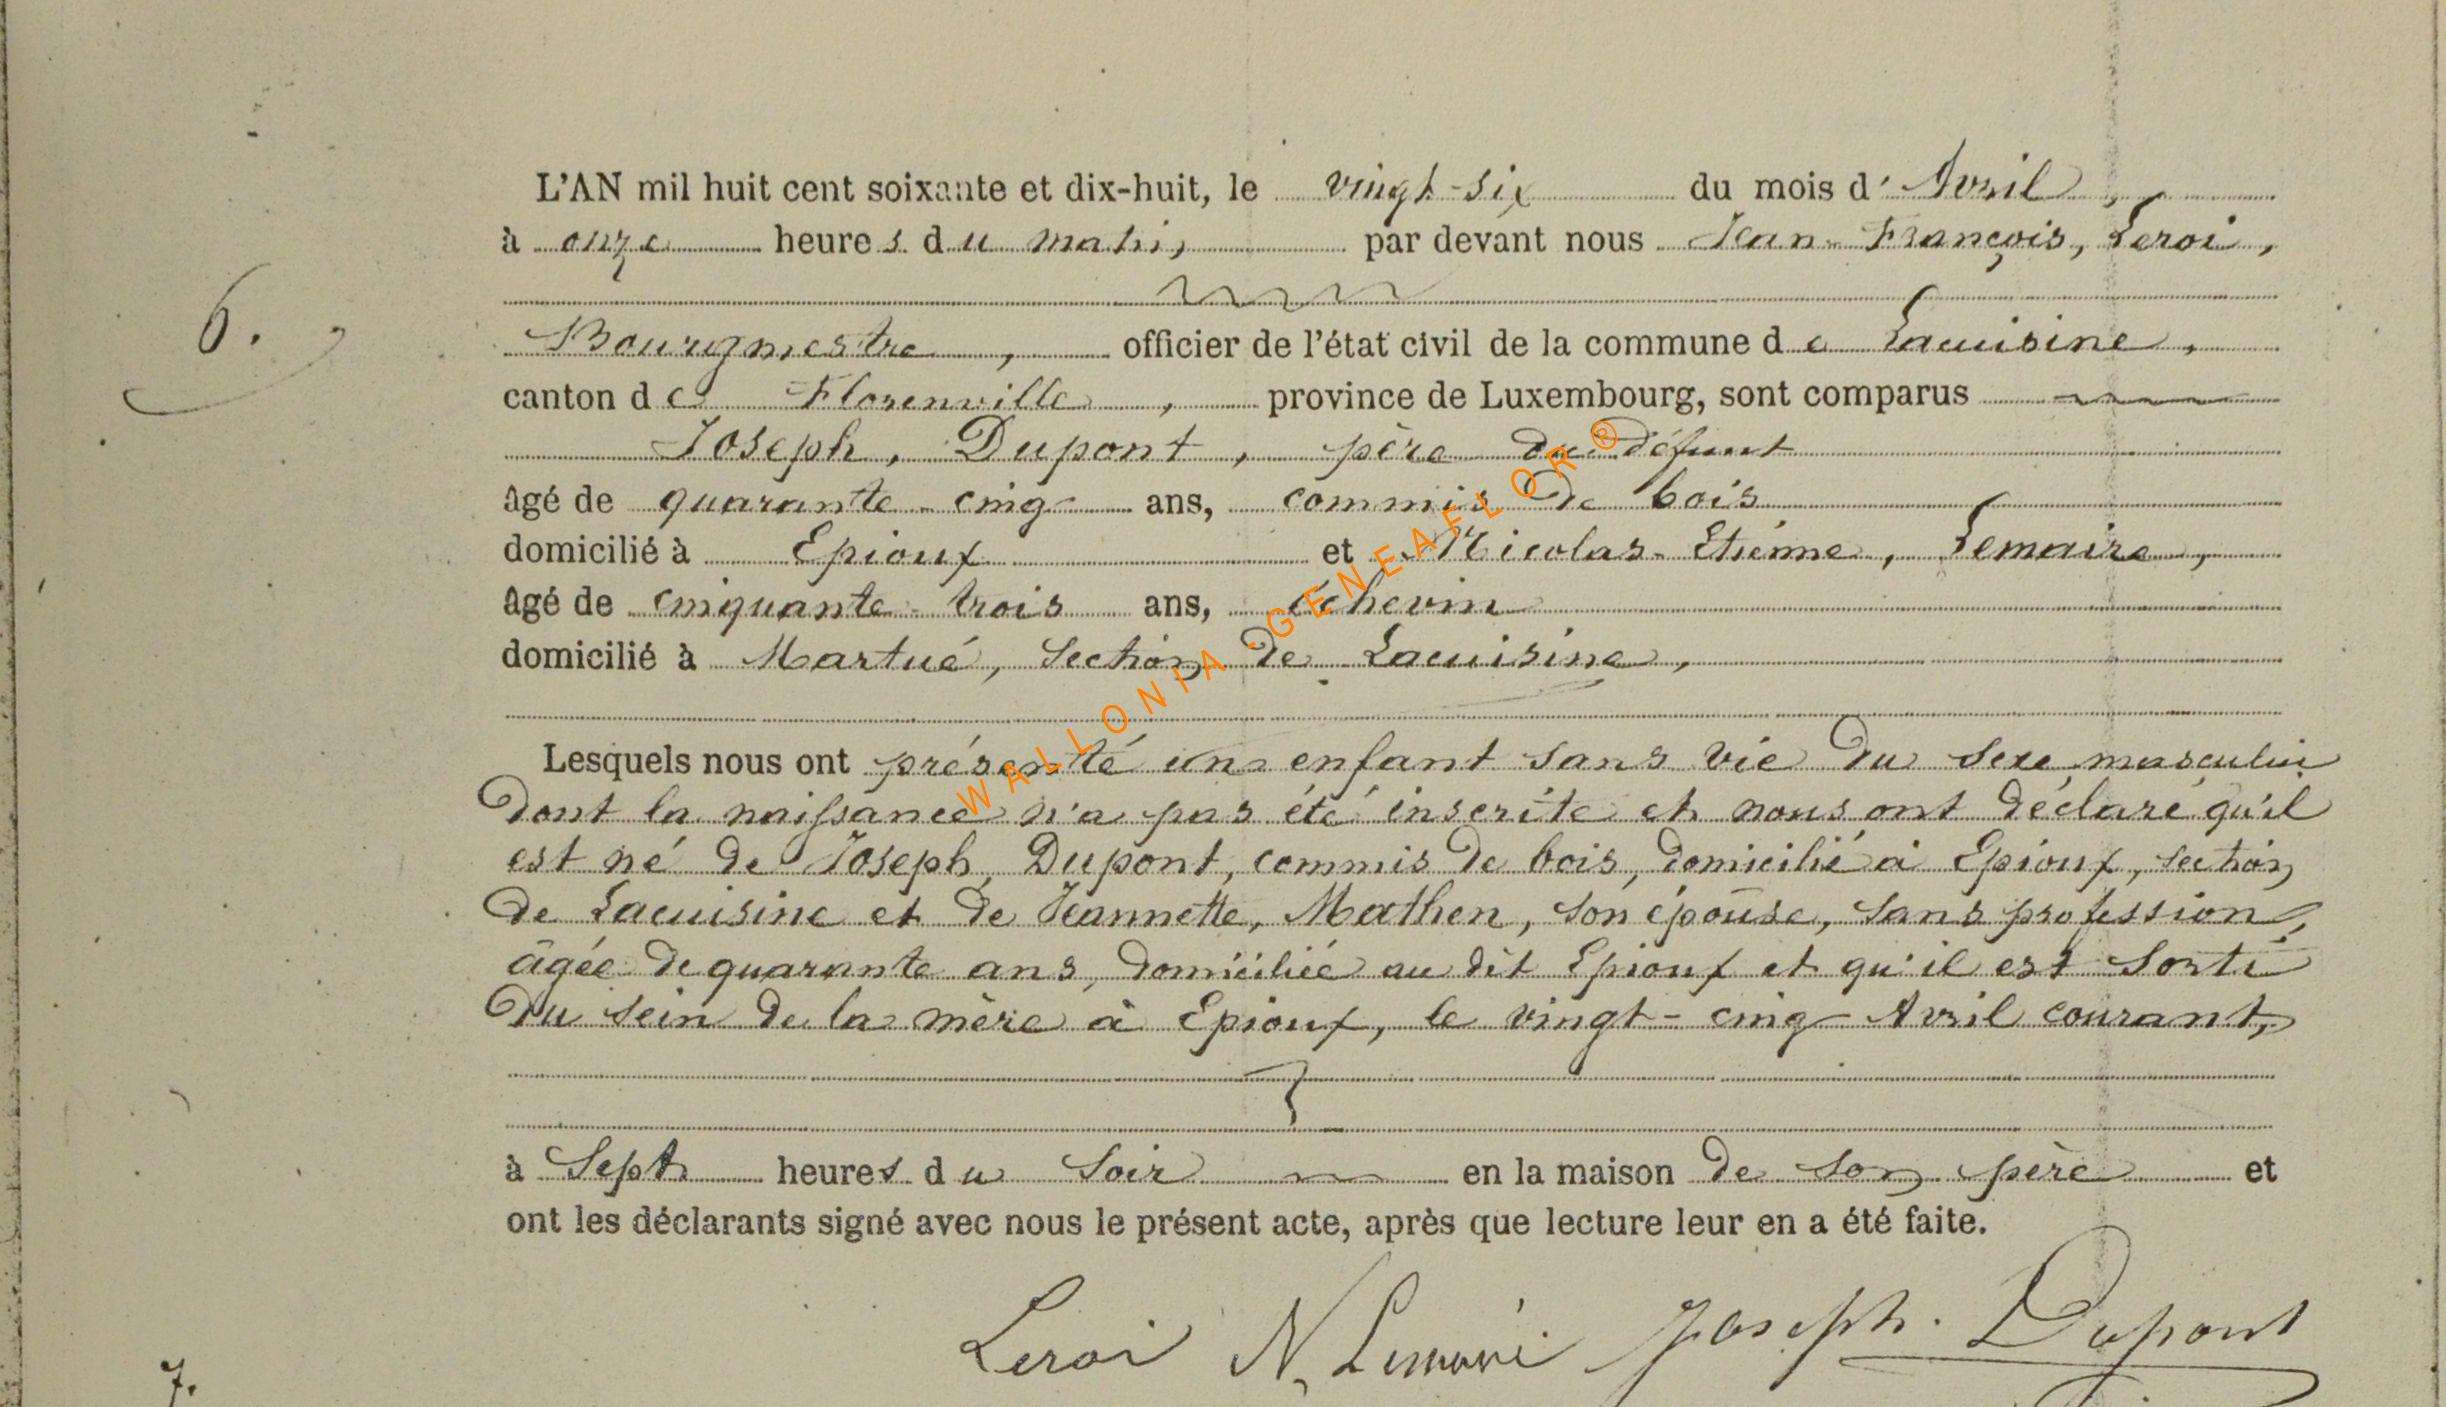 L'AN mil huit cent soixante et dix-huit, le vingt-six du mois d' Avril,
à onze heures du matin, par devant nous Jean-François, Leroi,
6.
Bourgmestre, officier de l'état civil de la commune de Lacuisine,
canton de Florenville, province de Luxembourg, sont comparus
Joseph, Dupont, père du défunt
âgé de quarante-cinq ans, commis de bois
domicilié à Epioux et Nicolas-Etiénne, Lemaire,
âgé de cinquante-trois ans, échevin
domicilié à Martué, section de Lacuisine,
WALLONIA-GENEAFLOR®
Lesquels nous ont présenté un enfant sans vie du sexe masculin
dont la naissance n'a pas été inscrite et nous ont déclaré qu'il
est né de Joseph, Dupont, commis de bois, domicilié à Epioux, section
de Lacuisine et de Jeannette, Mathen, son épouse, sans profession,
âgée de quarante ans, domiciliée au dit Epioux et qu'il est sorti
du sein de la mère à Epioux, le vingt-cinq Avril courant,
à sept heures du soir en la maison de son père et
ont les déclarants signé avec nous le présent acte, après que lecture leur en a été faite.
Leroi N. Lemaire Joseph. Dupont
7.